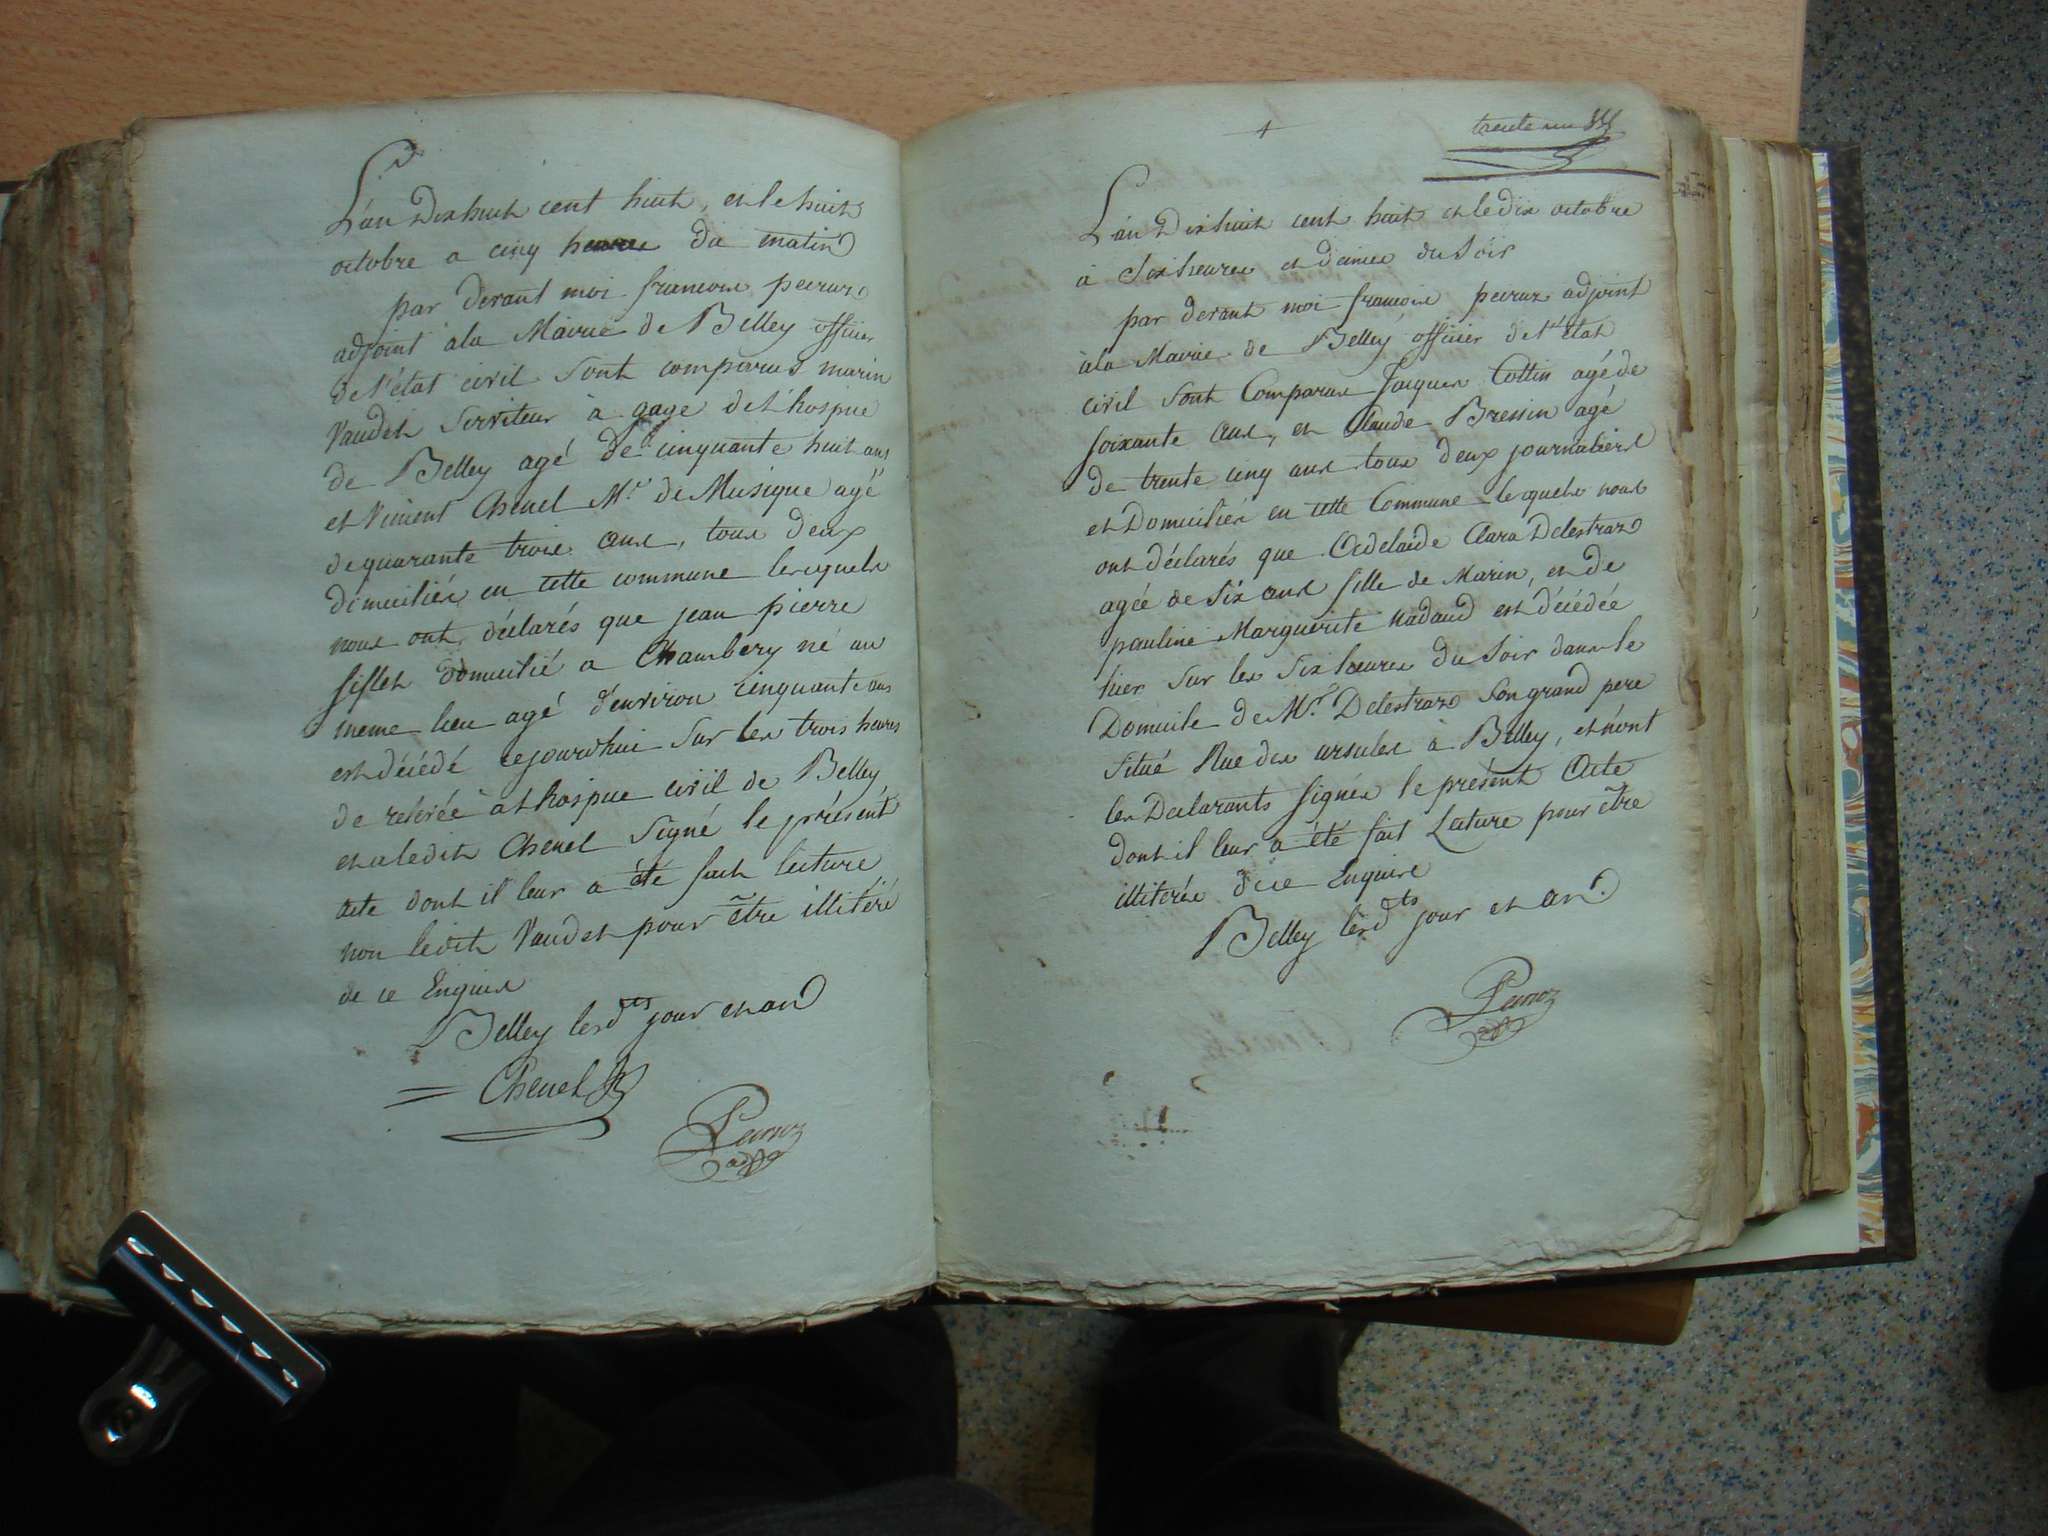 L'an Dix huit cent huit, et le huit
octobre a cinq heure du matin
par devant moi francois peiraz
adjoint à la Mairie de Belley officier
de l'état civil sont comparus marin
Vaudet Serviteur à gage de l'hospice
de Belley agé de cinquante huit ans
et Vincent Chenel Mr de Musique agé
de quarante trois ans, tous deux
domiciliés en cette commune lesquels
nous ont déclarés que jean pierre
domicilié a Chambery né au
meme lieu agé d'environ cinquante ans
est décédé cejourd'hui sur les trois heures
de relevée à l'hospice civil de Belley
et a ledit Chenel Signé le présent
acte dont il leur a été fait lecture
non ledit Vaudet pour être illitéré
de ce Enquis
Belley lesdts jour et an
= Chenel
adjt
trente un
L'an Dix huit cent huit et le dix octobre
à Six heures et demie du Soir
par devant moi francois peiraz adjoint
à la Mairie de Belley officier de l'état
civil sont Comparus Jacques Cottin agé de
soixante ans, et Claude Bressin agé
de trente cinq ans tous deux journaliers
et Domiciliés en cette Commune lesquels nous
ont déclarés que Adelaïde Clara Delestraz
agée de six ans fille de Marin, et de
pauline Marguerite nadaud est décédée
hier sur les six heures du Soir dans le
Domicile de Mr. Delestraz Son grand pere
situé Rue des ursules à Belley, et n'ont
les Declarants Signés le présent Acte
dont il leur a été fait Lecture pour être
illiterés de ce Enquis
Belley lesdts jour et an.
adjt